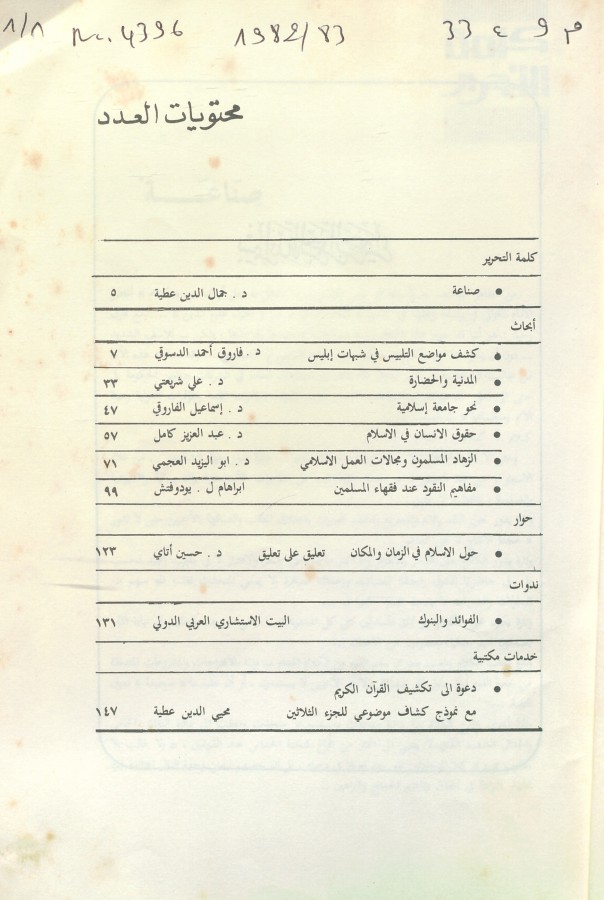 Nr. 4396 1982/83 م 9 ع 33
محتويات العدد
كلمة التحرير
• صناعة د . جمال الدين عطية ٥
أبحاث
• كشف مواضع التلبيس في شبهات إبليس د . فاروق أحمد الدسوقي ٧
• المدنية والحضارة د . علي شريعتي ٣٣
• نحو جامعة إسلامية د . إسماعيل الفاروقي ٤٧
• حقوق الانسان في الاسلام د . عبد العزيز كامل ٥٧
• الزهاد المسلمون ومجالات العمل الاسلامي د . ابو اليزيد العجمي ٧١
• مفاهيم النقود عند فقهاء المسلمين ابراهام ل . يودوفتش ٩٩
حوار
• حول الاسلام في الزمان والمكان تعليق على تعليق د . حسين أتاي ١٢٣
ندوات
• الفوائد والبنوك البيت الاستشاري العربي الدولي ١٣١
خدمات مكتبية
• دعوة الى تكشيف القرآن الكريم
مع نموذج كشاف موضوعي للجزء الثلاثين محيي الدين عطية ١٤٧